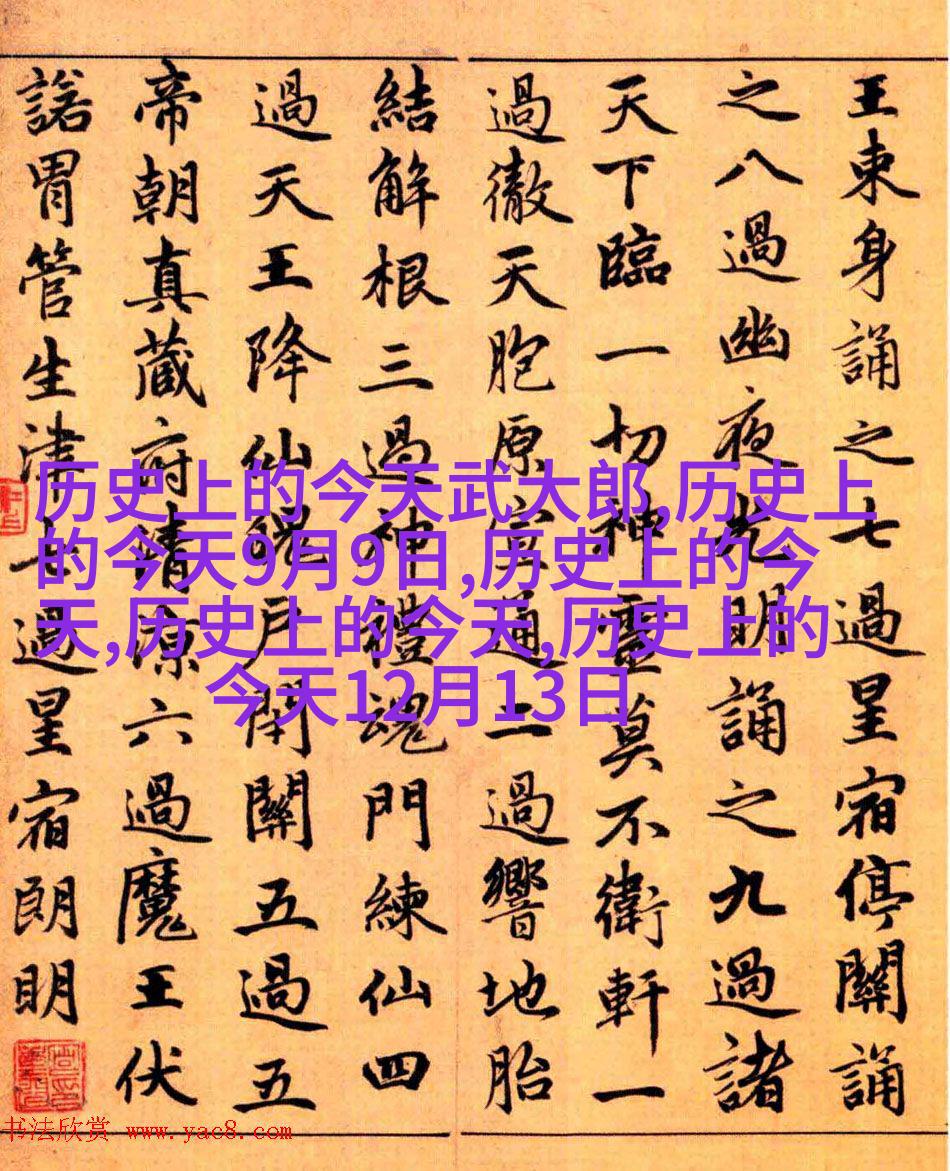 王東身誦之七過星宿停關誦
之八過幽夜光明誦之九過諸
天下臨一切神靈莫不衛軒一
過徹天胞原宣通二過響地胎
結解根三過神禮魂門練仙四
過天王降仙魄戶閉關五過五
帝朝真藏府清涼六過魔王伏
諾胃管生津七過星宿朗明
历史上的今天武大郎,历史上
的今天9月9日,历史上的今
天,历史上的今天,历史上的
今天12月13日
书法欣赏 www.yac8.com